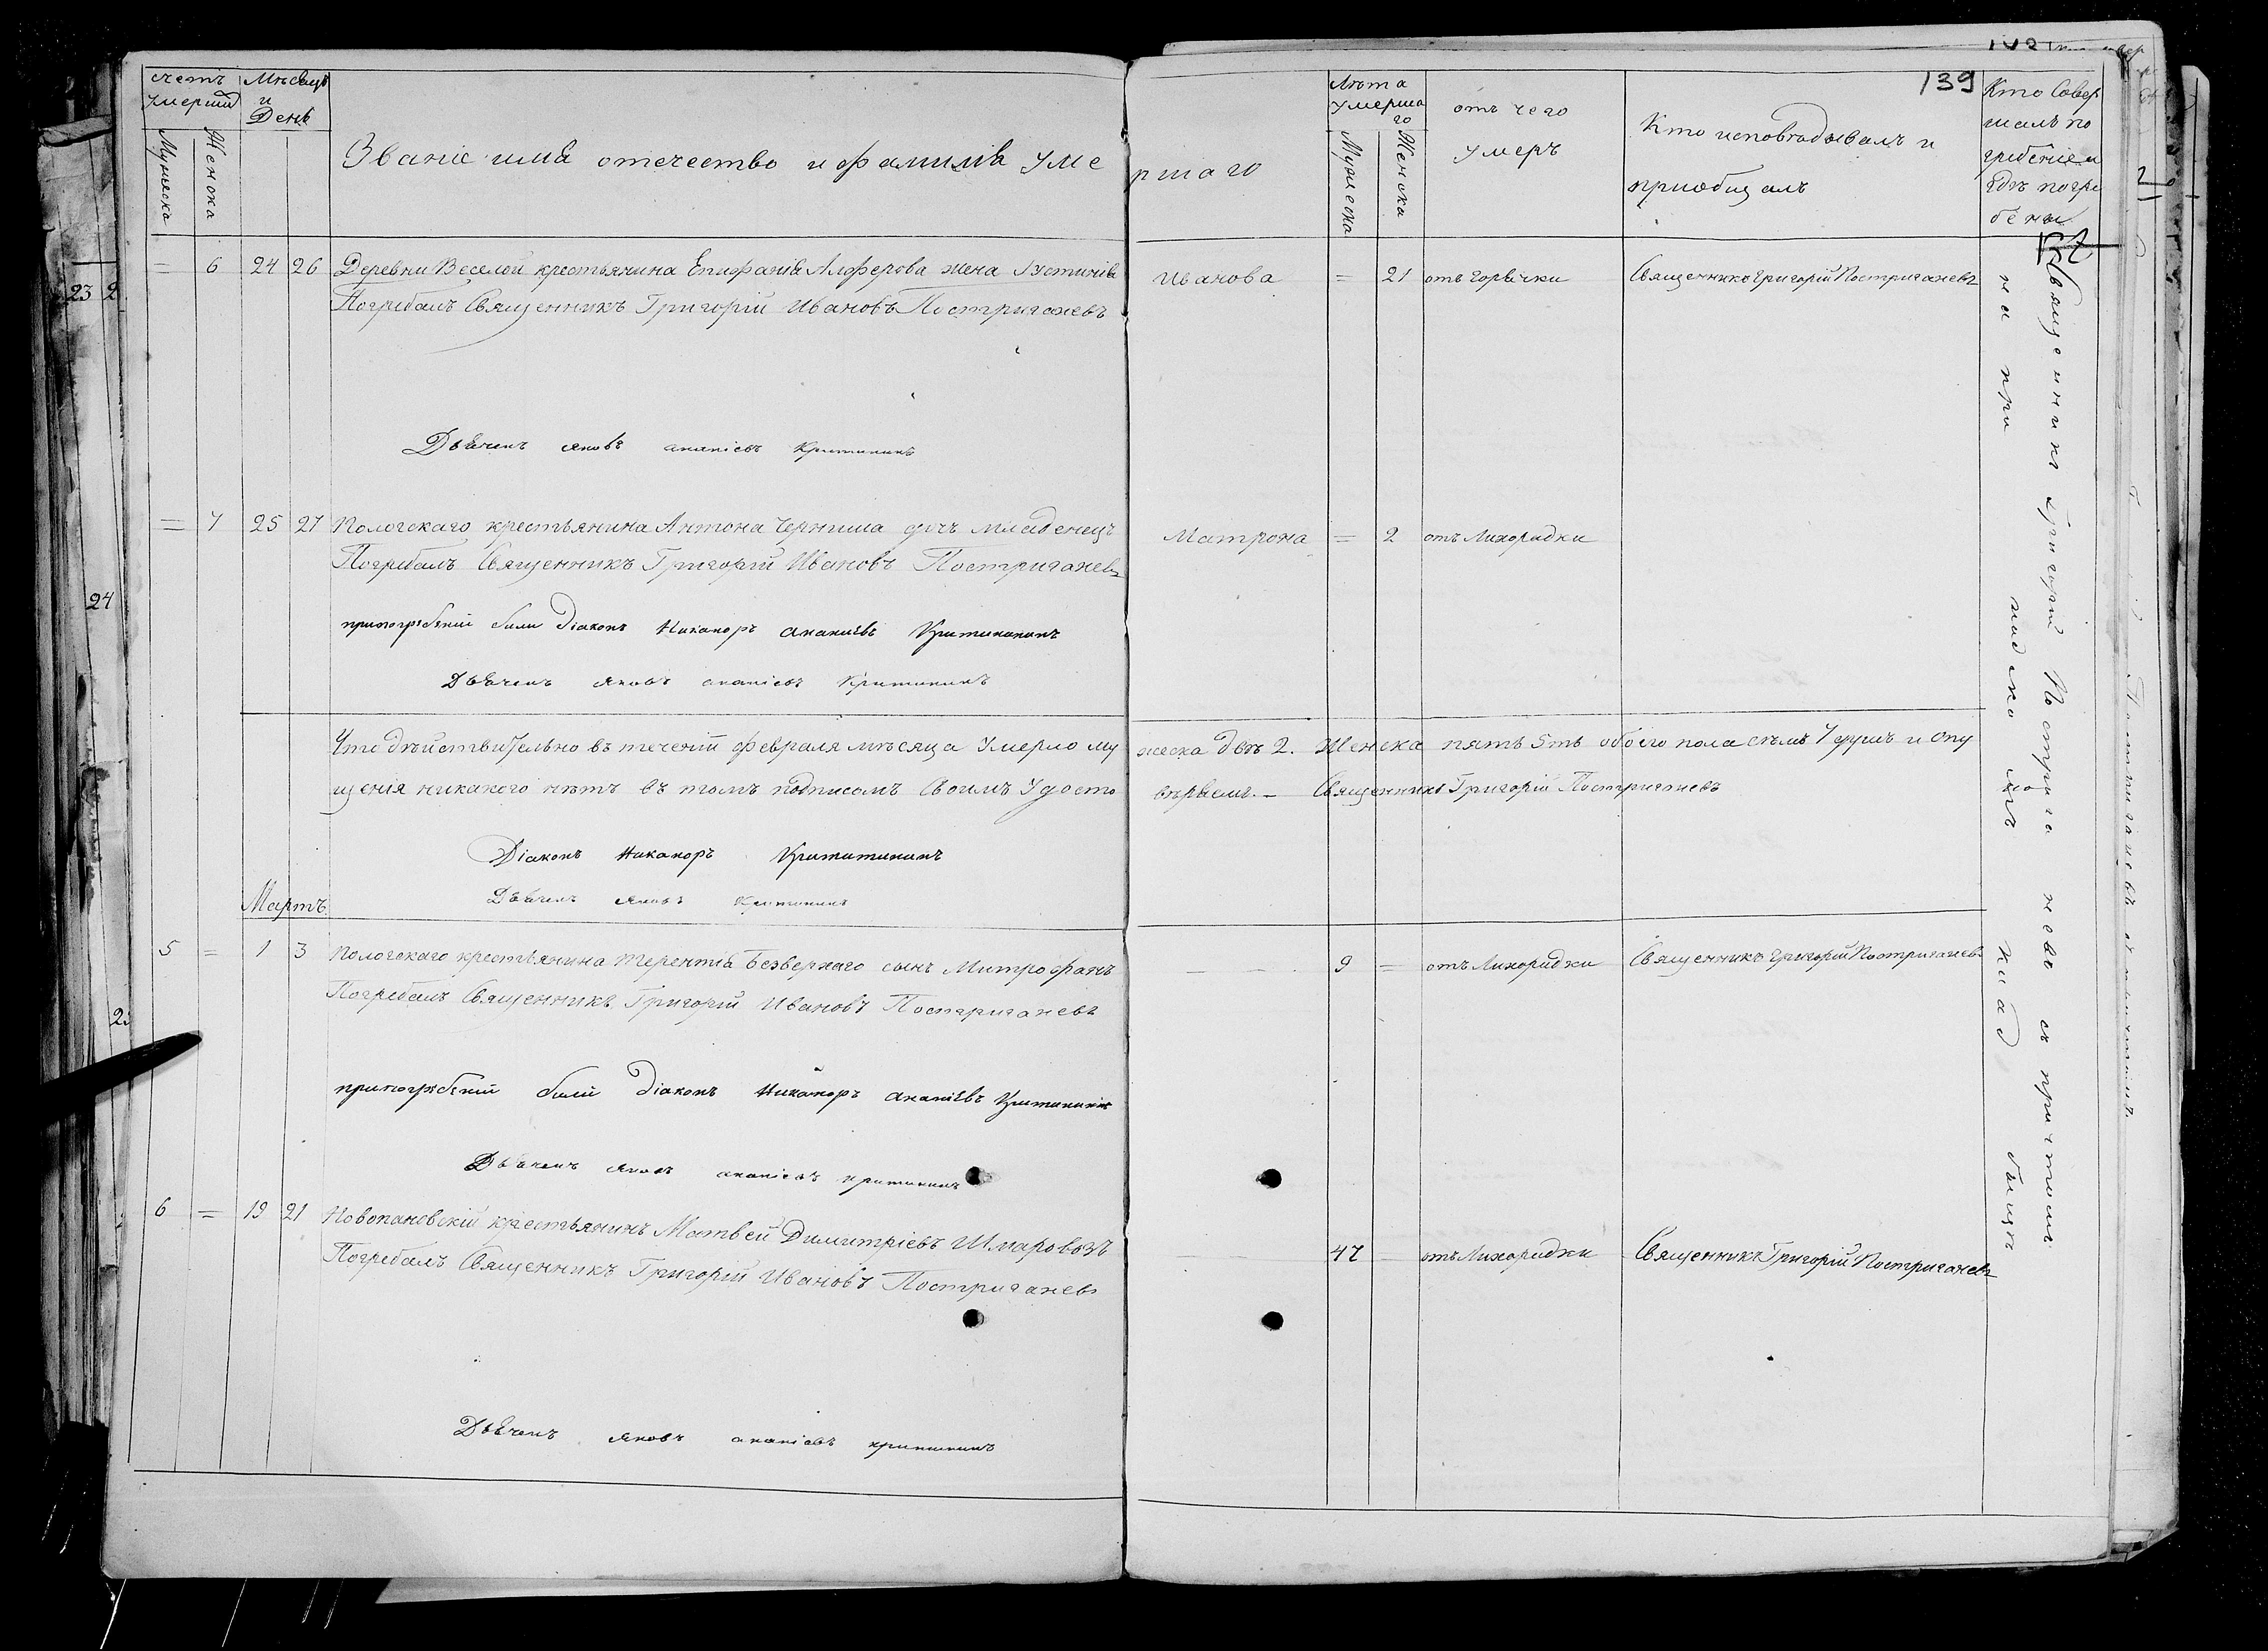 счетъ умерших
Мѣсяцъ и День
Мужеска
Женска
Званіе имя отечество и фамилія умершаго
Лѣта умершаго
Мужеска
Женска
отъ чего умеръ
Кто исповѣдывалъ и пріобщалъ
139
Кто Совершалъ погребеніе и гдѣ погребены
= 6 24 26 Деревни Веселой крестьянина Епифанія Алферова жена Іустинія Иванова = 21 отъ горячки Священникъ Григорій Постригачевъ
Погребалъ Священникъ Григорій Ивановъ Постригачевъ
Дьячекъ Яковъ ананіевъ Критинин
= 7 25 27 Пологскаго крестьянина Антона Черниша дочь младенецъ Матрона = 2 отъ Лихорадки
Погребалъ Священникъ Григорій Ивановъ Постригачевъ
припогребеніи были Діаконъ Никаноръ Ананіевъ
Дьячекъ Яковъ ананіевъ
Что дѣйствительно въ теченіи февраля мѣсяца умерло мужеска двѣ 2. Женска пять 5ть обоего пола сѣмь 7 душъ и опу
щенія никакого нѣтъ въ томъ подписомъ Своимъ Удостовѣряемъ. — Священникъ Григорій Постригачевъ
Діаконъ Никаноръ
Дьячекъ Яковъ
Мартъ
5 = 1 3 Пологскаго крестьянина Терентія Безверхаго сынъ Митрофанъ 9 = отъ Лихорадки Священникъ Григорій Постригачевъ
Погребалъ Священникъ Григорій Ивановъ Постригачевъ
припогребеніи были Діаконъ Никаноръ Ананіевъ
Дьячекъ Яковъ ананіевъ
6 = 19 21 Новопановскій крестьянинъ Матвей Димитріевъ Шмаровозъ 47 = отъ Лихорадки Священникъ Григорій Постригачевъ
Погребалъ Священникъ Григорій Ивановъ Постригачевъ
Дьячекъ Яковъ ананіевъ
Священникъ Григорій Постригачевъ съ причтомъ
на при ход ско мъ клад бищи
23 2
24